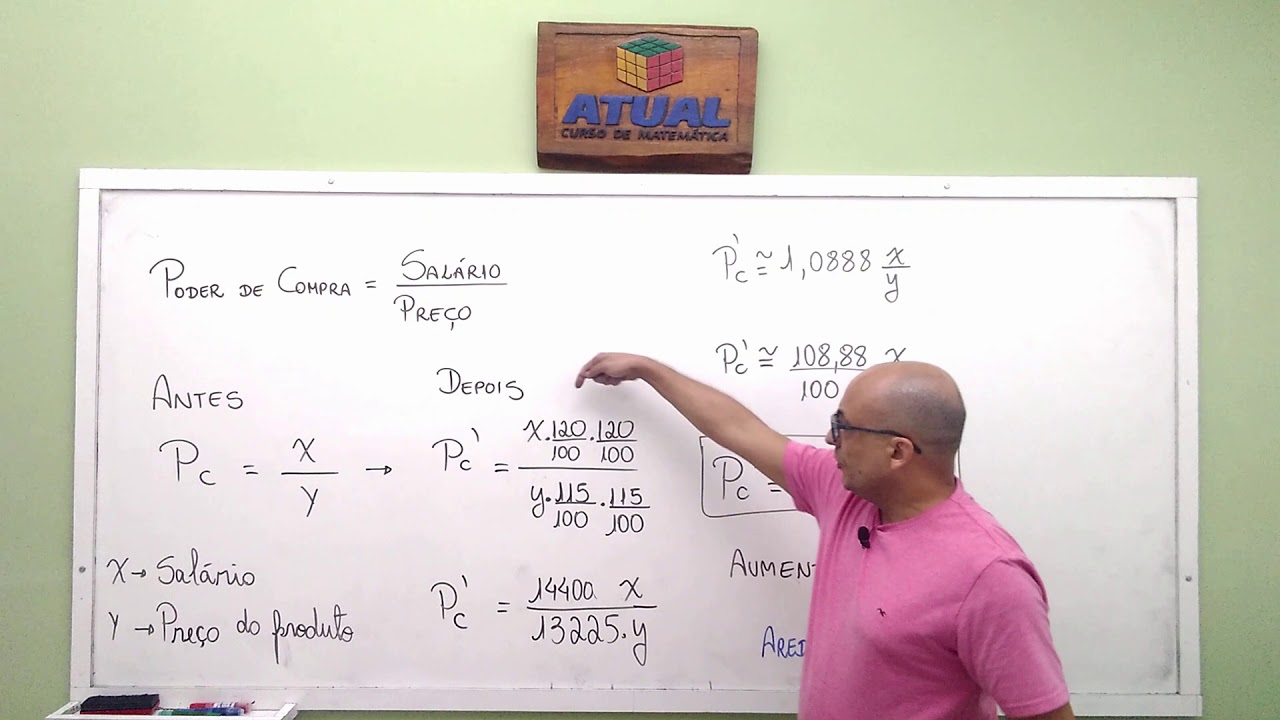 ATUAL
CURSO DE MATEMÁTICA
PODER DE COMPRA = SALÁRIO / PREÇO
ANTES
Pc = x / y →
x → Salário
y → Preço do produto
DEPOIS
Pc' = x . 120/100 . 120/100 / y . 115/100 . 115/100
Pc' = 14400 x / 13225 . y
Pc' ≅ 1,0888 x / y
Pc' ≅ 108,88 / 100 x
Pc =